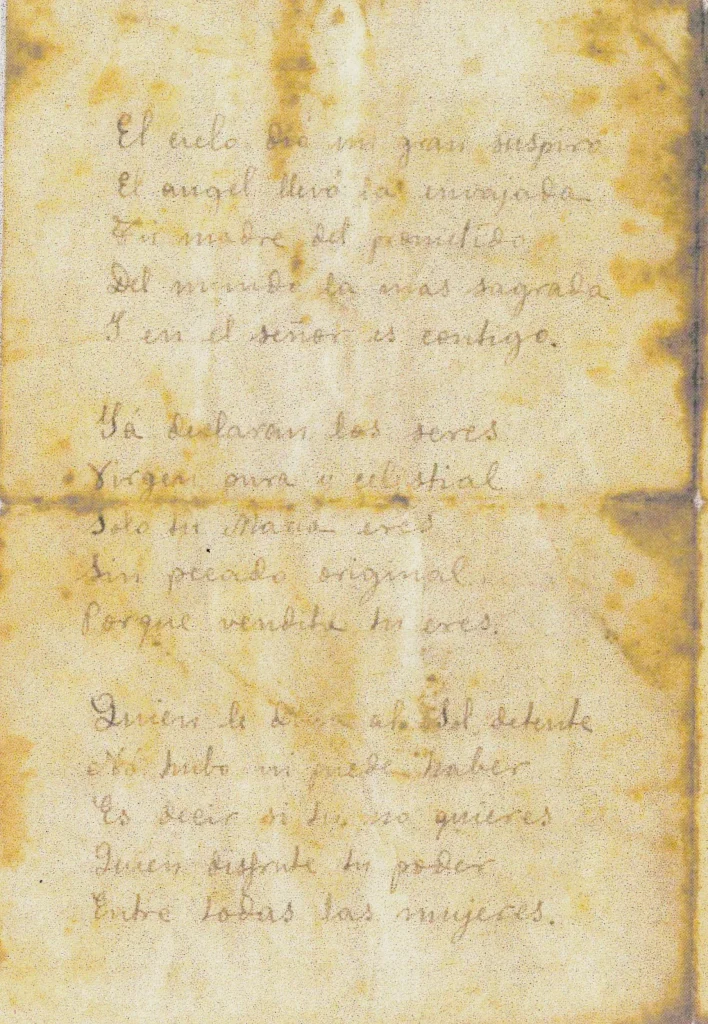 El cielo dió un gran suspiro
El angel llevó la envajada
Tu madre del prometido
Del mundo la mas sagrada
I en el señor es contigo.
Yá declaran los seres
Virgen pura y celestial
Solo tu Maria eres
Sin pecado original
Porque vendita tu eres.
Quien le al Sol detente
Nó hubo ni puede haber
Es decir si tu no quieres
Quien disfrute tu poder
Entre todas las mujeres.